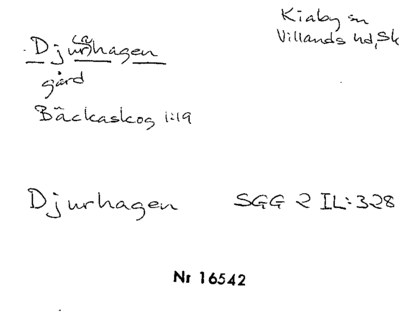 Kiaby sn
Villands hd, Sk
Djur(a)hagen
gård
Bäckaskog 1:19
Djurhagen SGG 2 IL:328
Nr 16542